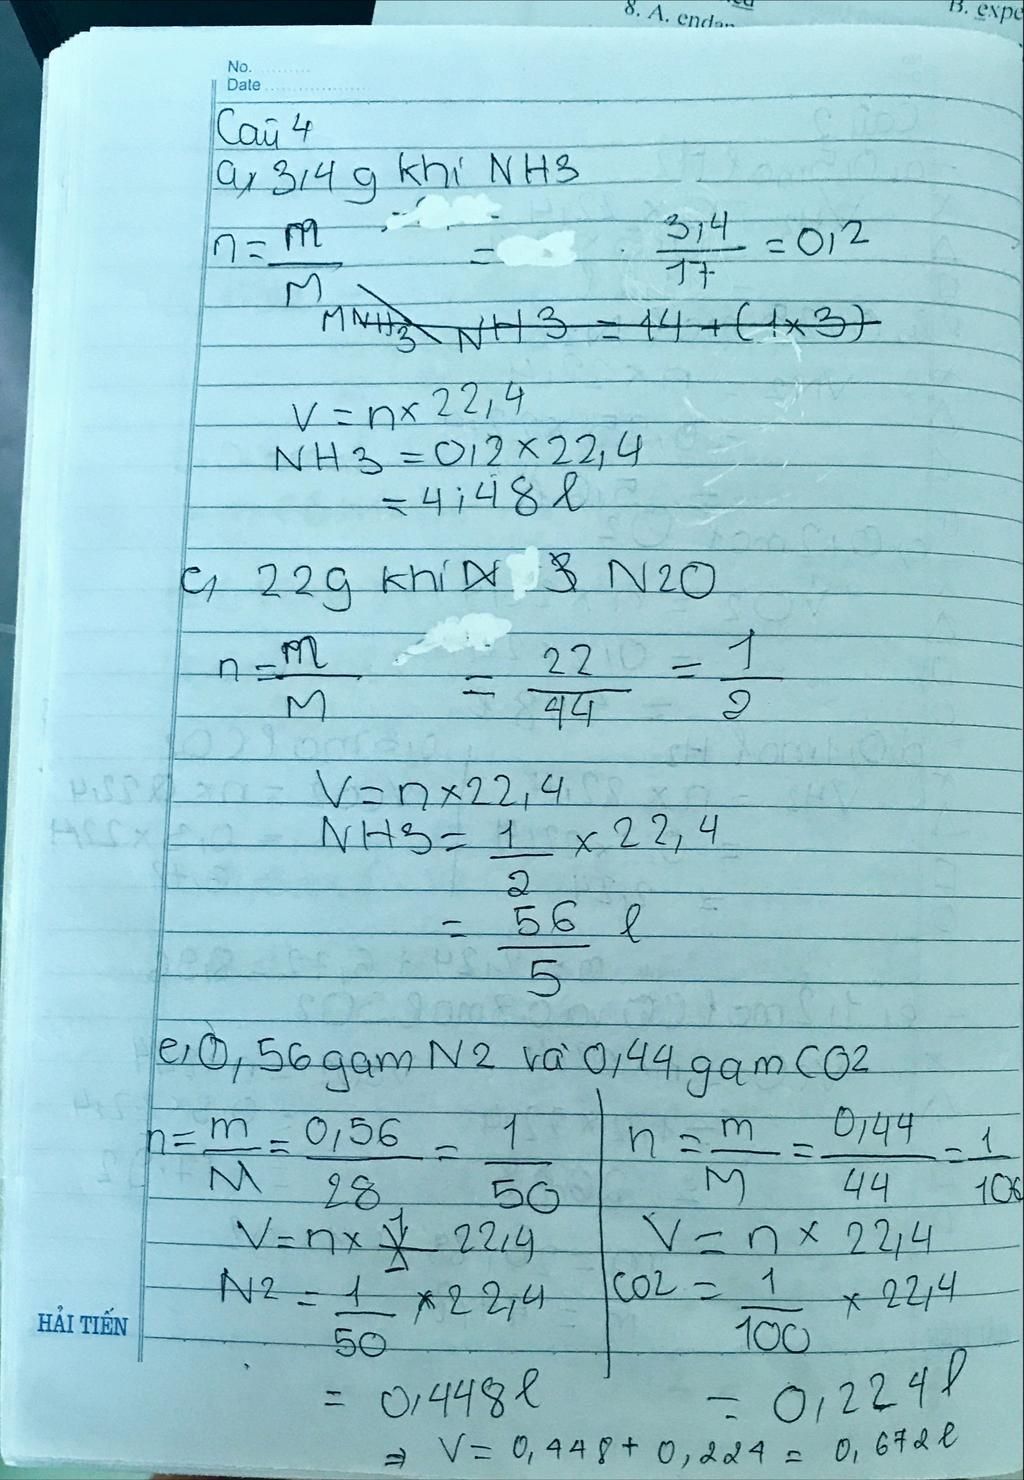 8. A. endan
B. expe
No.
Date
Câu 4
a, 3,4 g khí NH3
n = m/M = 3,4/17 = 0,2
MNH3 NH3 = 14 + (1x3)
V = n x 22,4
NH3 = 0,2 x 22,4
= 4,48 l
c, 22g khí N 3 N2O
n = m/M = 22/44 = 1/2
V = n x 22,4
NH3 = 1/2 x 22,4
= 56/5 l
e, 0,56 gam N2 và 0,44 gam CO2
n = m/M = 0,56/28 = 1/50
V = n x 22,4
N2 = 1/50 x 22,4
= 0,448 l
n = m/M = 0,44/44 = 1/100
V = n x 22,4
CO2 = 1/100 x 22,4
= 0,224 l
⇒ V = 0,448 + 0,224 = 0,672 l
HẢI TIẾN